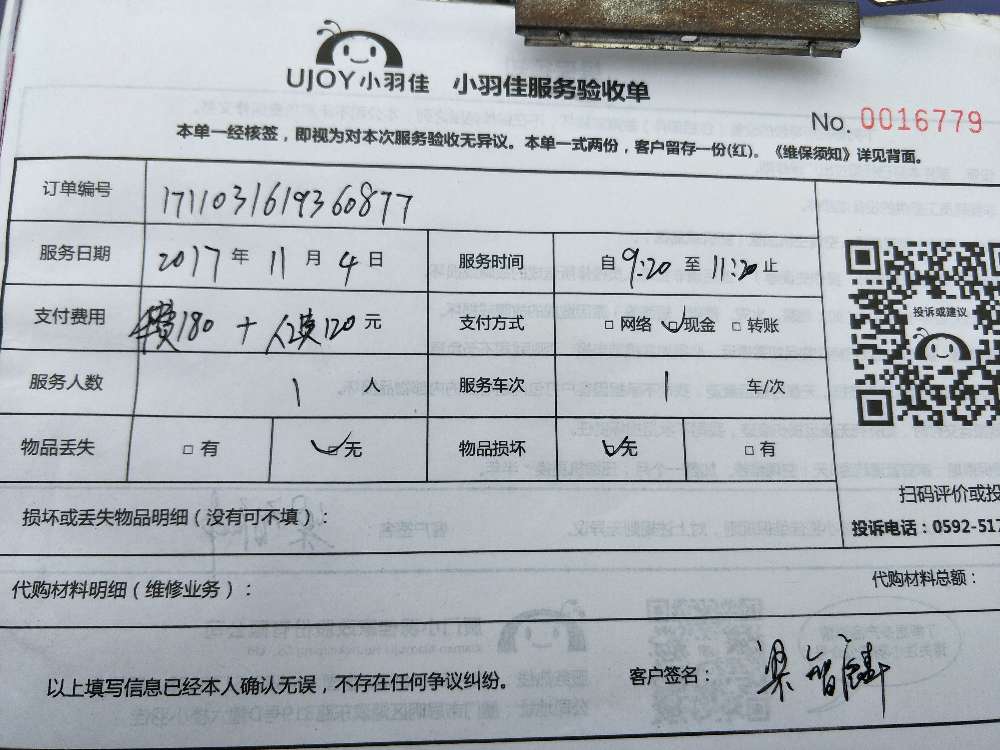 UJOY小羽佳 小羽佳服务验收单
No. 0016779
本单一经核签，即视为对本次服务验收无异议。本单一式两份，客户留存一份(红)。《维保须知》详见背面。
订单编号 1711031619360877
服务日期 2017年11月4日 服务时间 自9:20至11:20止
支付费用 180 + 120元 支付方式 □网络 ☑现金 □转账
投诉或建议
服务人数 1人 服务车次 1 车/次
物品丢失 □有 ☑无 物品损坏 ☑无 □有
扫码评价或投
损坏或丢失物品明细（没有可不填）：
投诉电话：0592-517
代购材料明细（维修业务）： 代购材料总额：
以上填写信息已经本人确认无误，不存在任何争议纠纷。 客户签名：梁智